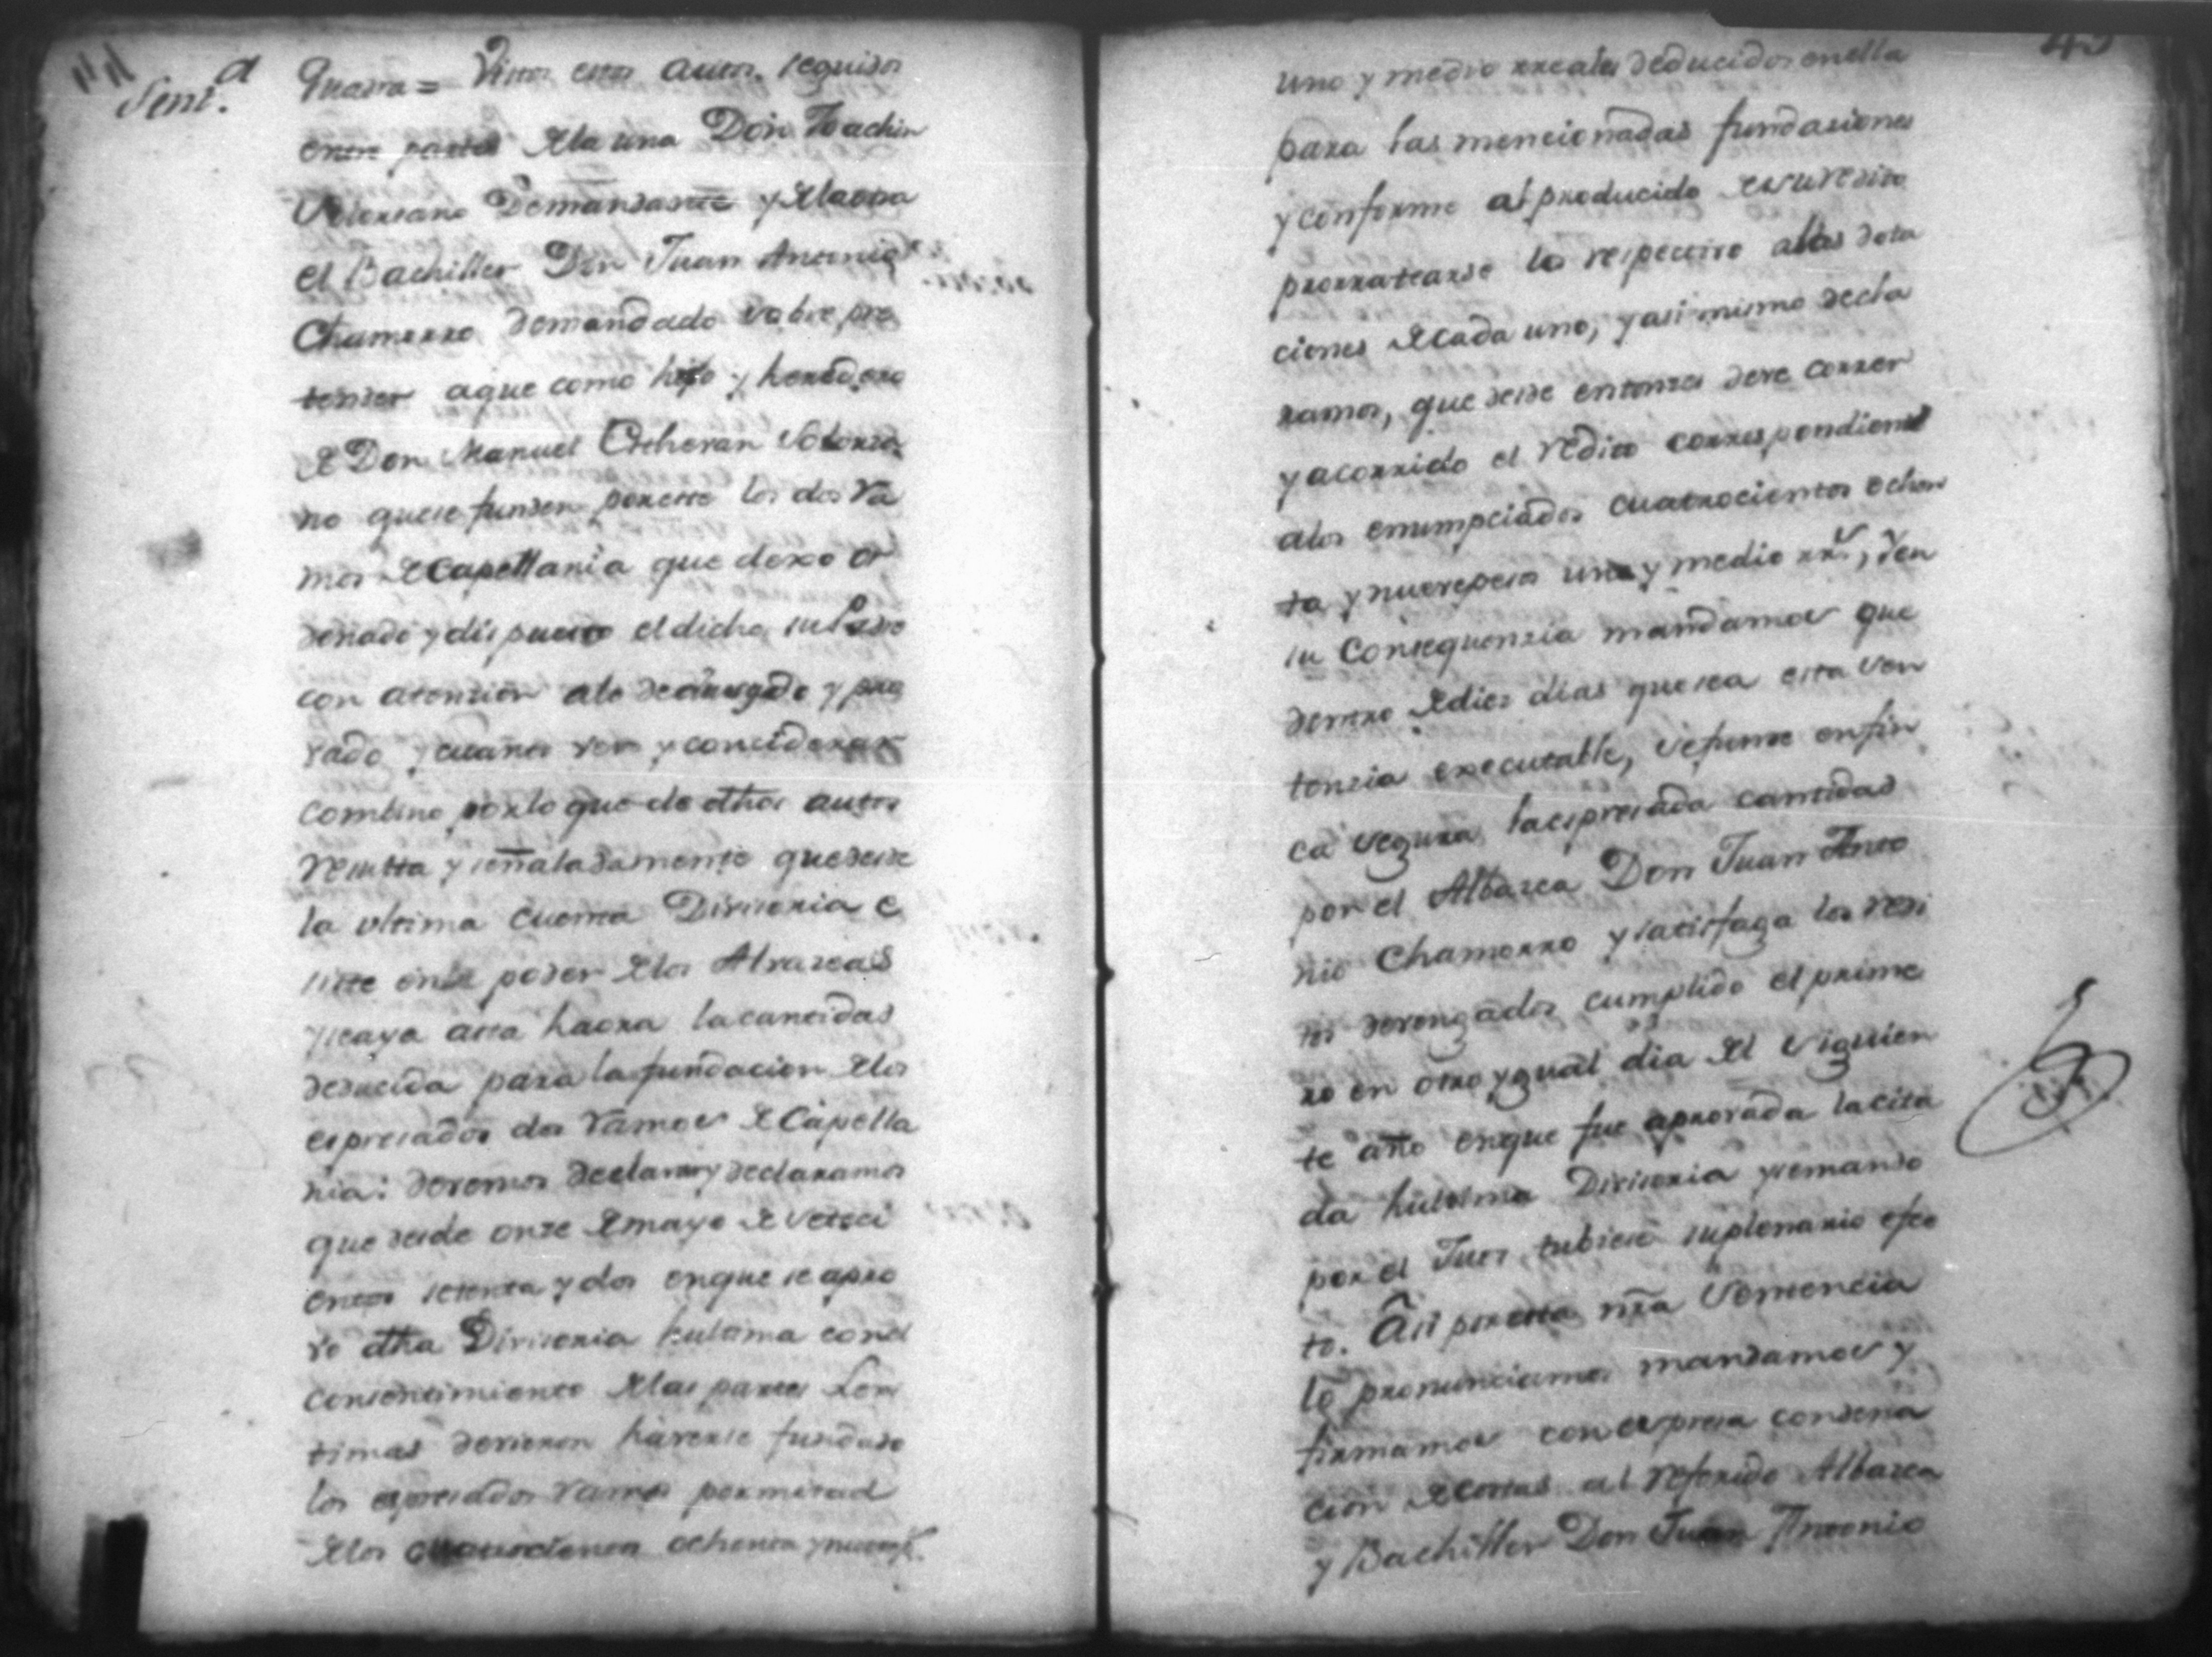 Sent.a
Quadra = Vistos estos autos, seguidos
entre partes de la una Don Joachin
Solorsano Demandante y de la otra
el Bachiller Don Juan Antonio
Chamorro demandado sobre pre
tender aque como hijo y heredero
de Don Manuel Estheran Solorsa
no que se funden por este los dos Ra
mos de Capellania que dexo or
denado y dispuesto el dicho su Padre
con atension alo de alegado y pro
vado y cuanto ver y conciderar
combino por lo que de dthos autos
resulta y señaladamente que desde
la ultima cuenta Divisoria e
siste en poder de los Alvaceas
y leaya asta haora la cantidad
deducida para la fundacion de los
espresados dos Ramos de Capella
nia: devemos declarar y declaramos
que desde onze de mayo de setesi
entos setenta y dos en que se apro
vo dtha Divisoria hultima con el
consentimiento de las partes Lexi
timas devieron haverse fundado
los espresados Ramos por mitad
de los cuatrocientos ochenta y nueve p.
45
uno y medio rreales deducidos en ella
para las mencionadas fundasiones
y conforme al producido de su redito
prorratearse lo respectivo a las dota
ciones de cada uno, y asi mismo decla
ramos, que desde entonzes deve correr
y a corrido el redito correspondiente
a los enumpciados cuatrocientos ochen
ta y nueve pesos uno y medio rr.s, y en
su consequenzia mandamos que
dentro de dies dias que sea esta sen
tenzia executable, se funde en fin
ca segura la espresada cantidad
por el Albazea Don Juan Anto
nio Chamorro y satisfaga los redi
tos devengados cumplido el prime
ro en otro ygual dia del siguien
te año en que fue aprovada la cita
da hultima Divisoria y se mando
por el Jues tubiese su plenario efec
to. Asi por esta nra Sentencia
lo pronunciamos mandamos y
firmamos con espresa condena
cion de costas al referido Albazea
y Bachiller Don Juan Antonio